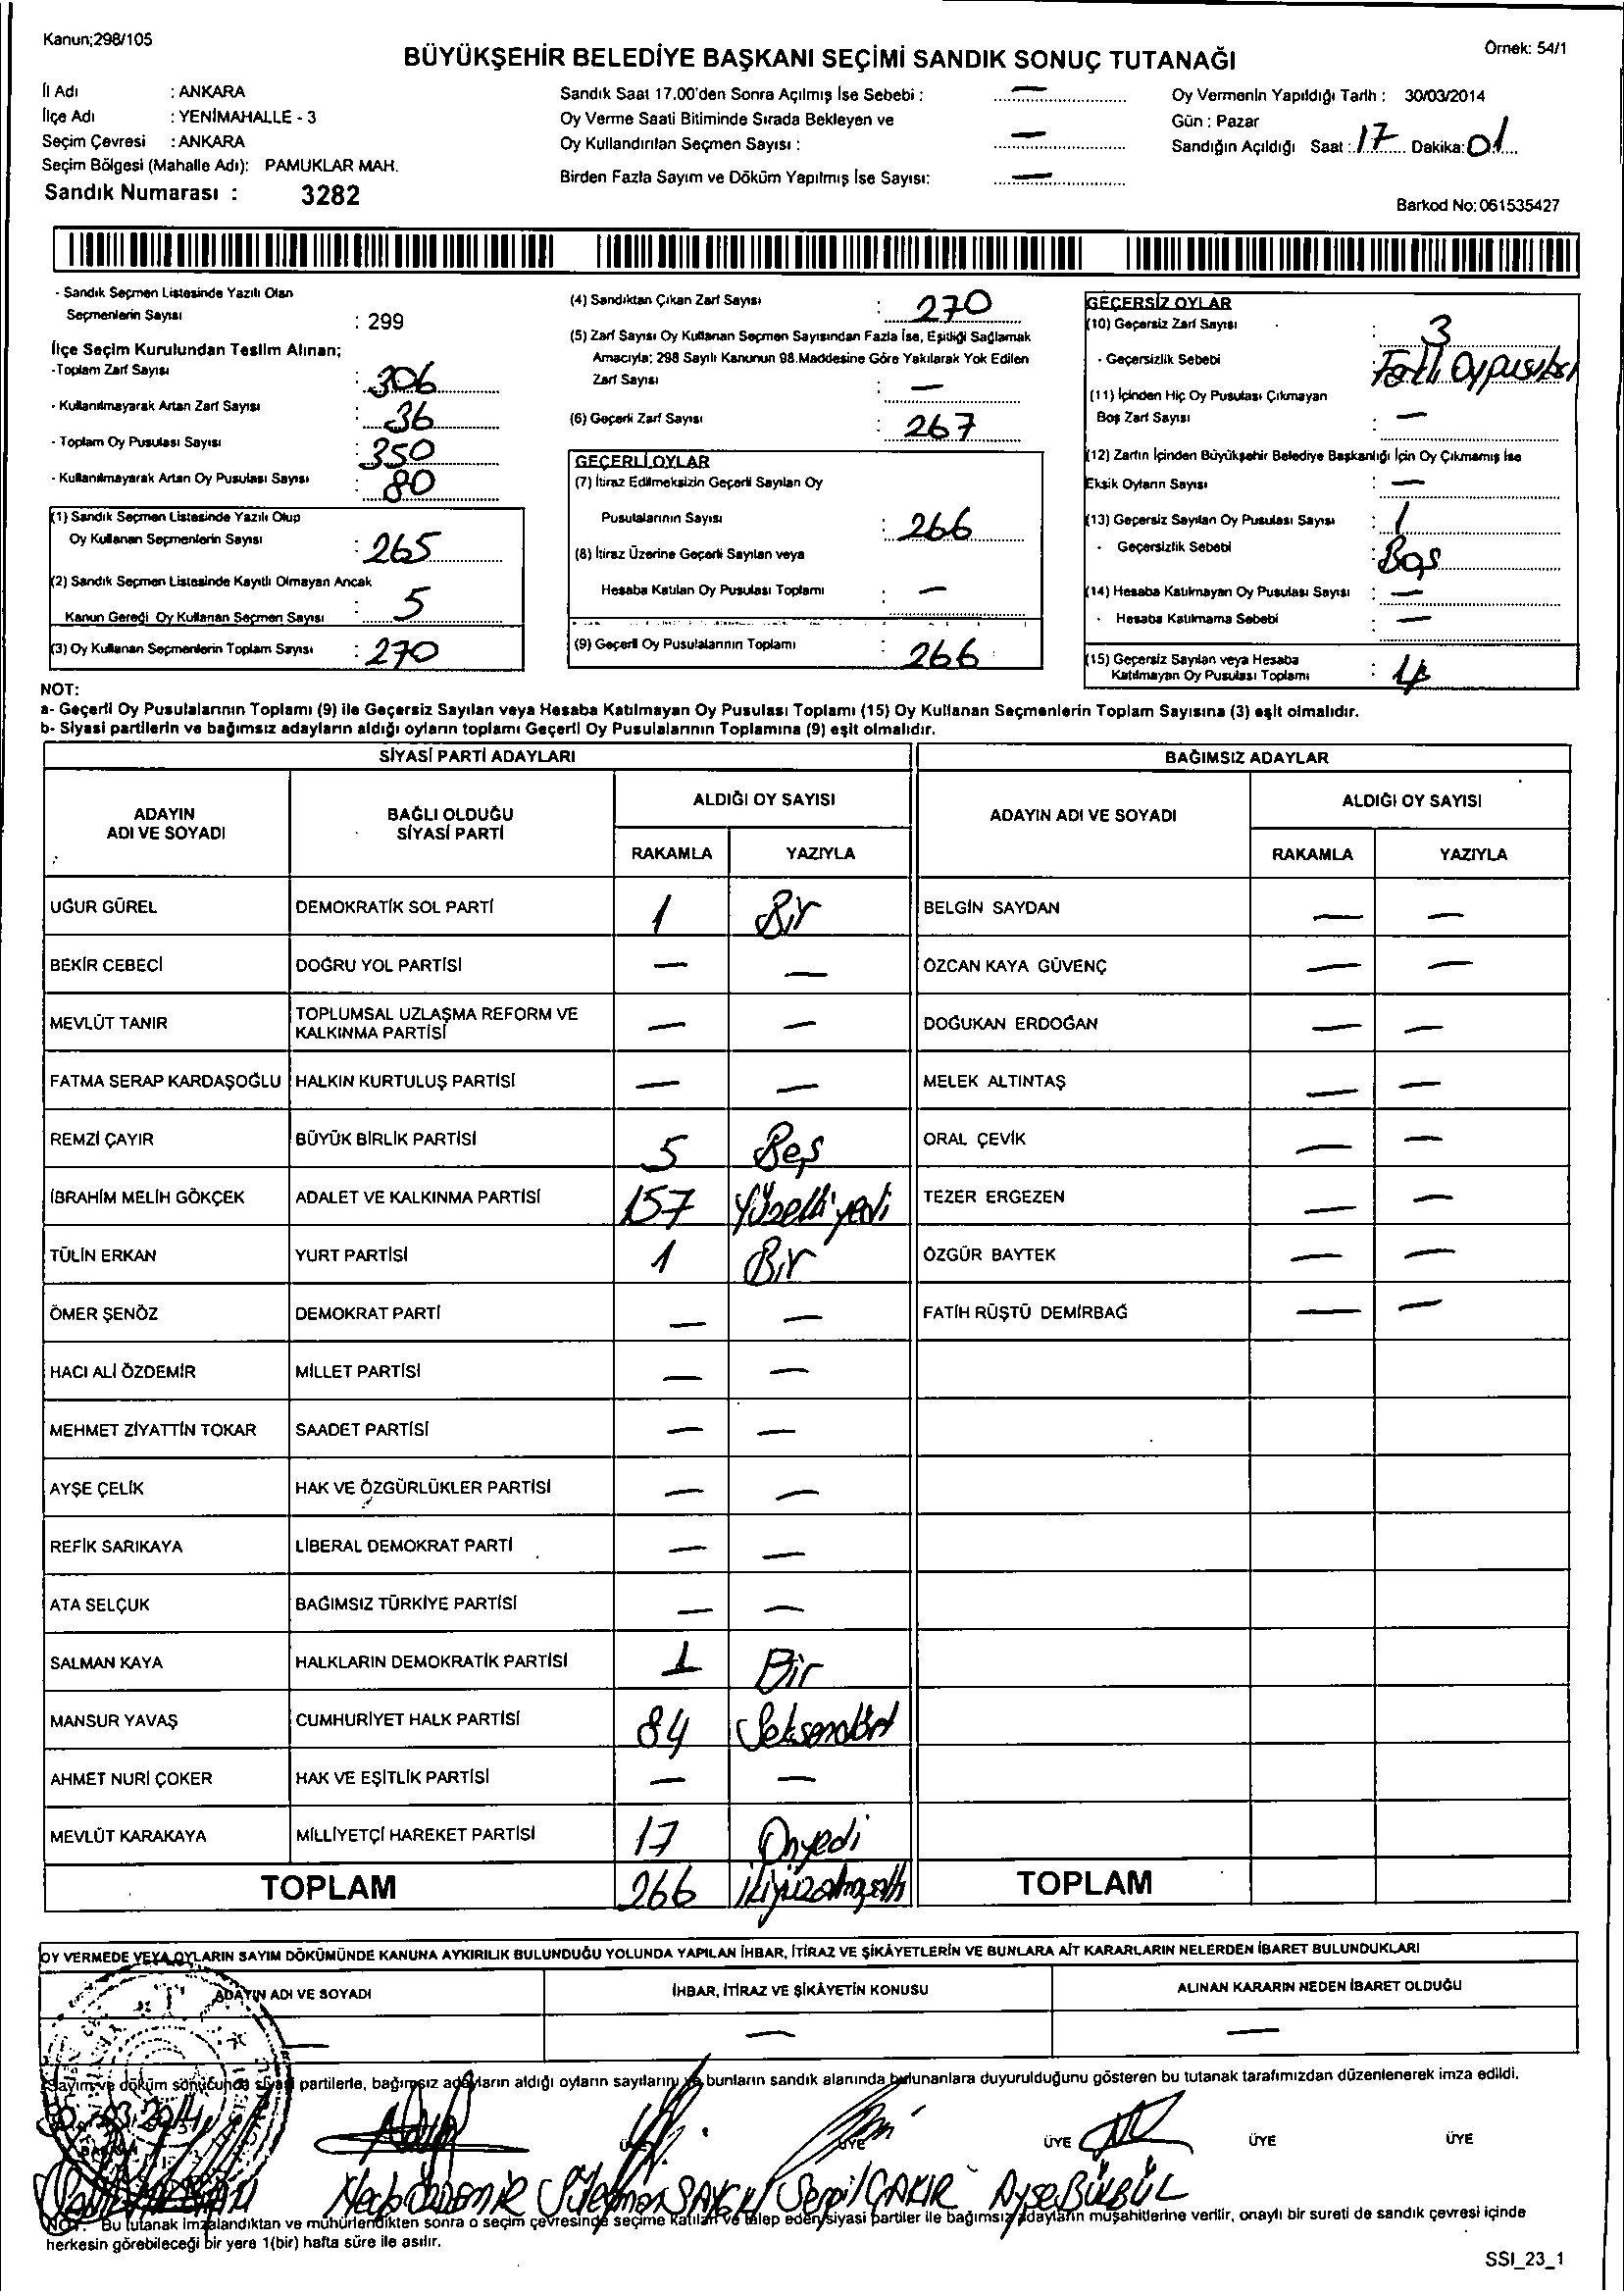 Kanun;298/105
Örnek: 54/1
BÜYÜKŞEHİR BELEDİYE BAŞKANI SEÇİMİ SANDIK SONUÇ TUTANAĞI
İl Adı : ANKARA
İlçe Adı : YENİMAHALLE - 3
Seçim Çevresi : ANKARA
Seçim Bölgesi (Mahalle Adı): PAMUKLAR MAH.
Sandık Numarası : 3282
Sandık Saat 17.00'den Sonra Açılmış İse Sebebi : —
Oy Verme Saati Bitiminde Sırada Bekleyen ve
Oy Kullandırılan Seçmen Sayısı : —
Birden Fazla Sayım ve Döküm Yapılmış İse Sayısı: —
Oy Vermenin Yapıldığı Tarih : 30/03/2014
Gün : Pazar
Sandığın Açıldığı Saat : 17 Dakika: 01
Barkod No: 061535427
- Sandık Seçmen Listesinde Yazılı Olan
Seçmenlerin Sayısı : 299
İlçe Seçim Kurulundan Teslim Alınan;
-Toplam Zarf Sayısı : 306
- Kullanılmayarak Artan Zarf Sayısı : 36
- Toplam Oy Pusulası Sayısı : 350
- Kullanılmayarak Artan Oy Pusulası Sayısı : 80
(1) Sandık Seçmen Listesinde Yazılı Olup
Oy Kullanan Seçmenlerin Sayısı : 265
(2) Sandık Seçmen Listesinde Kayıtlı Olmayan Ancak
Kanun Gereği Oy Kullanan Seçmen Sayısı : 5
(3) Oy Kullanan Seçmenlerin Toplam Sayısı : 270
(4) Sandıktan Çıkan Zarf Sayısı : 270
(5) Zarf Sayısı Oy Kullanan Seçmen Sayısından Fazla İse, Eşitliği Sağlamak
Amacıyla; 298 Sayılı Kanunun 98.Maddesine Göre Yakılarak Yok Edilen
Zarf Sayısı : —
(6) Geçerli Zarf Sayısı : 267
GEÇERLİ OYLAR
(7) İtiraz Edilmeksizin Geçerli Sayılan Oy
Pusulalarının Sayısı : 266
(8) İtiraz Üzerine Geçerli Sayılan veya
Hesaba Katılan Oy Pusulası Toplamı : —
(9) Geçerli Oy Pusulalarının Toplamı : 266
GEÇERSİZ OYLAR
(10) Geçersiz Zarf Sayısı : 3
- Geçersizlik Sebebi :
(11) İçinden Hiç Oy Pusulası Çıkmayan
Boş Zarf Sayısı : —
(12) Zarfın İçinden Büyükşehir Belediye Başkanlığı İçin Oy Çıkmamış İse
Eksik Oyların Sayısı : —
(13) Geçersiz Sayılan Oy Pusulası Sayısı : 1
- Geçersizlik Sebebi : Boş
(14) Hesaba Katılmayan Oy Pusulası Sayısı : —
- Hesaba Katılmama Sebebi : —
(15) Geçersiz Sayılan veya Hesaba
Katılmayan Oy Pusulası Toplamı : 4
NOT:
a- Geçerli Oy Pusulalarının Toplamı (9) ile Geçersiz Sayılan veya Hesaba Katılmayan Oy Pusulası Toplamı (15) Oy Kullanan Seçmenlerin Toplam Sayısına (3) eşit olmalıdır.
b- Siyasi partilerin ve bağımsız adayların aldığı oyların toplamı Geçerli Oy Pusulalarının Toplamına (9) eşit olmalıdır.
SİYASİ PARTİ ADAYLARI BAĞIMSIZ ADAYLAR
ADAYIN ADI VE SOYADI BAĞLI OLDUĞU SİYASİ PARTİ ALDIĞI OY SAYISI ADAYIN ADI VE SOYADI ALDIĞI OY SAYISI
RAKAMLA YAZIYLA RAKAMLA YAZIYLA
UĞUR GÜREL DEMOKRATİK SOL PARTİ 1 Bir BELGİN SAYDAN — —
BEKİR CEBECİ DOĞRU YOL PARTİSİ — — ÖZCAN KAYA GÜVENÇ — —
MEVLÜT TANIR TOPLUMSAL UZLAŞMA REFORM VE KALKINMA PARTİSİ — — DOĞUKAN ERDOĞAN — —
FATMA SERAP KARDAŞOĞLU HALKIN KURTULUŞ PARTİSİ — — MELEK ALTINTAŞ — —
REMZİ ÇAYIR BÜYÜK BİRLİK PARTİSİ 5 Beş ORAL ÇEVİK — —
İBRAHİM MELİH GÖKÇEK ADALET VE KALKINMA PARTİSİ 157 Yüzelliyedi TEZER ERGEZEN — —
TÜLİN ERKAN YURT PARTİSİ 1 Bir ÖZGÜR BAYTEK — —
ÖMER ŞENÖZ DEMOKRAT PARTİ — — FATİH RÜŞTÜ DEMİRBAĞ — —
HACI ALİ ÖZDEMİR MİLLET PARTİSİ — —
MEHMET ZİYATTİN TOKAR SAADET PARTİSİ — —
AYŞE ÇELİK HAK VE ÖZGÜRLÜKLER PARTİSİ — —
REFİK SARIKAYA LİBERAL DEMOKRAT PARTİ — —
ATA SELÇUK BAĞIMSIZ TÜRKİYE PARTİSİ — —
SALMAN KAYA HALKLARIN DEMOKRATİK PARTİSİ 1 Bir
MANSUR YAVAŞ CUMHURİYET HALK PARTİSİ 84 Seksendört
AHMET NURİ ÇOKER HAK VE EŞİTLİK PARTİSİ — —
MEVLÜT KARAKAYA MİLLİYETÇİ HAREKET PARTİSİ 17 Onyedi
TOPLAM 266 ikiyüzaltmışaltı TOPLAM
OY VERMEDE VEYA OYLARIN SAYIM DÖKÜMÜNDE KANUNA AYKIRILIK BULUNDUĞU YOLUNDA YAPILAN İHBAR, İTİRAZ VE ŞİKÂYETLERİN VE BUNLARA AİT KARARLARIN NELERDEN İBARET BULUNDUKLARI
ADAYIN ADI VE SOYADI İHBAR, İTİRAZ VE ŞİKÂYETİN KONUSU ALINAN KARARIN NEDEN İBARET OLDUĞU
— — —
Sayım ve döküm sonucunda siyasi partilerle, bağımsız adayların aldığı oyların sayılarını ve bunların sandık alanında bulunanlara duyurulduğunu gösteren bu tutanak tarafımızdan düzenlenerek imza edildi.
ÜYE ÜYE ÜYE ÜYE
Süleyman Serpil ÇAKIR Ayşe BÜLBÜL
NOT: Bu tutanak imzalandıktan ve mühürlendikten sonra o seçim çevresinde seçime katılan ve talep eden siyasi partiler ile bağımsız adayların müşahitlerine verilir, onaylı bir sureti de sandık çevresi içinde
herkesin görebileceği bir yere 1(bir) hafta süre ile asılır.
SSI_23_1